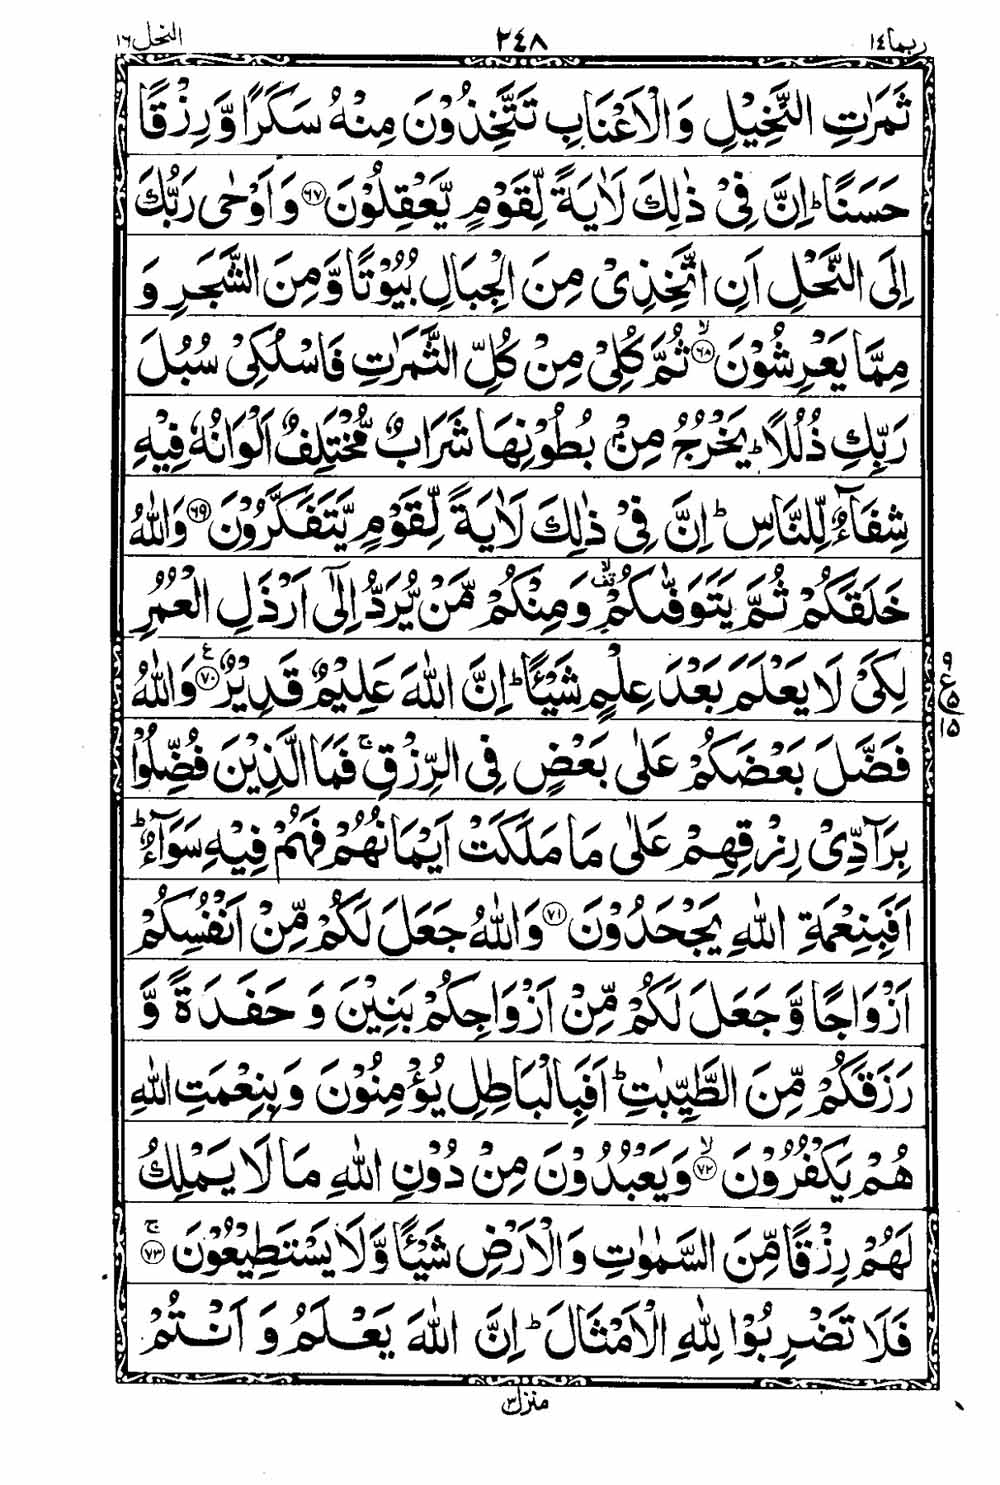 ربما ١٤ ٢٤٨ النحل ١٦
ثَمَرٰتِ النَّخِیْلِ وَ الْاَعْنَابِ تَتَّخِذُوْنَ مِنْهُ سَكَرًا وَّ رِزْقًا
حَسَنًاؕ اِنَّ فِیْ ذٰلِكَ لَاٰیَةً لِّقَوْمٍ یَّعْقِلُوْنَ ﴿٦٧﴾ وَ اَوْحٰی رَبُّكَ
اِلَی النَّحْلِ اَنِ اتَّخِذِیْ مِنَ الْجِبَالِ بُیُوْتًا وَّ مِنَ الشَّجَرِ وَ
مِمَّا یَعْرِشُوْنَ ۙ﴿٦٨﴾ ثُمَّ كُلِیْ مِنْ كُلِّ الثَّمَرٰتِ فَاسْلُكِیْ سُبُلَ
رَبِّكِ ذُلُلًاؕ یَخْرُجُ مِنْۢ بُطُوْنِهَا شَرَابٌ مُّخْتَلِفٌ اَلْوَانُهٗ فِیْهِ
شِفَآءٌ لِّلنَّاسِؕ اِنَّ فِیْ ذٰلِكَ لَاٰیَةً لِّقَوْمٍ یَّتَفَكَّرُوْنَ ﴿٦٩﴾ وَ اللّٰهُ
خَلَقَكُمْ ثُمَّ یَتَوَفّٰىكُمْ ۙ۫ وَ مِنْكُمْ مَّنْ یُّرَدُّ اِلٰۤی اَرْذَلِ الْعُمُرِ
لِكَیْ لَا یَعْلَمَ بَعْدَ عِلْمٍ شَیْـًٔاؕ اِنَّ اللّٰهَ عَلِیْمٌ قَدِیْرٌ ﴿٧٠﴾ع وَ اللّٰهُ
٩ ع ٥ ١٥
فَضَّلَ بَعْضَكُمْ عَلٰی بَعْضٍ فِی الرِّزْقِۚ فَمَا الَّذِیْنَ فُضِّلُوْا
بِرَآدِّیْ رِزْقِهِمْ عَلٰی مَا مَلَكَتْ اَیْمَانُهُمْ فَهُمْ فِیْهِ سَوَآءٌؕ
اَفَبِنِعْمَةِ اللّٰهِ یَجْحَدُوْنَ ﴿٧١﴾ وَ اللّٰهُ جَعَلَ لَكُمْ مِّنْ اَنْفُسِكُمْ
اَزْوَاجًا وَّ جَعَلَ لَكُمْ مِّنْ اَزْوَاجِكُمْ بَنِیْنَ وَ حَفَدَةً وَّ
رَزَقَكُمْ مِّنَ الطَّیِّبٰتِؕ اَفَبِالْبَاطِلِ یُؤْمِنُوْنَ وَ بِنِعْمَتِ اللّٰهِ
هُمْ یَكْفُرُوْنَ ۙ﴿٧٢﴾ وَ یَعْبُدُوْنَ مِنْ دُوْنِ اللّٰهِ مَا لَا یَمْلِكُ
لَهُمْ رِزْقًا مِّنَ السَّمٰوٰتِ وَ الْاَرْضِ شَیْـًٔا وَّ لَا یَسْتَطِیْعُوْنَ ۚ﴿٧٣﴾
فَلَا تَضْرِبُوْا لِلّٰهِ الْاَمْثَالَؕ اِنَّ اللّٰهَ یَعْلَمُ وَ اَنْتُمْ
منزل ٣